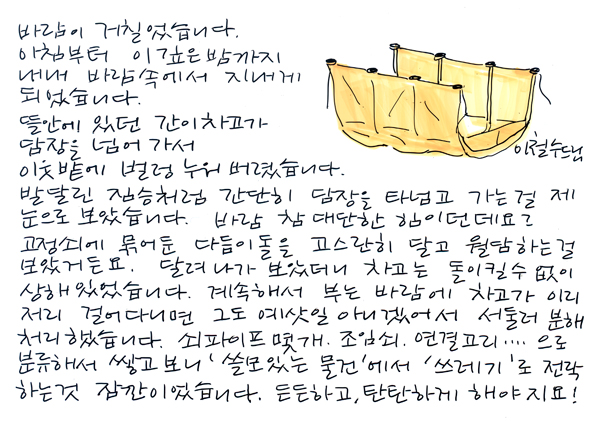 바람이 거칠었습니다.
아침부터 이 깊은 밤까지
내내 바람속에서 지내게
되었습니다.
뜰안에 있던 간이차고가
담장을 넘어 가서
이웃밭에 벌렁 누워 버렸습니다.
이철수드림
발달린 짐승처럼 간단히 담장을 타넘고 가는걸 제
눈으로 보았습니다. 바람 참 대단한 힘이던데요?
고정쇠에 묶어둔 다듬이돌을 고스란히 달고 월담하는걸
보았거든요. 달려나가 보았더니 차고는 돌이킬수 없이
상해있었습니다. 계속해서 부는 바람에 차고가 이리
저리 걸어다니면 그도 예삿일 아니겠어서 서둘러 분해
처리했습니다. 쇠파이프 몇개. 조임쇠. 연결고리.... 으로
분류해서 쌓고보니 '쓸모있는 물건'에서 '쓰레기'로 전락
하는것 잠깐이었습니다. 든든하고, 탄탄하게 해야지요!